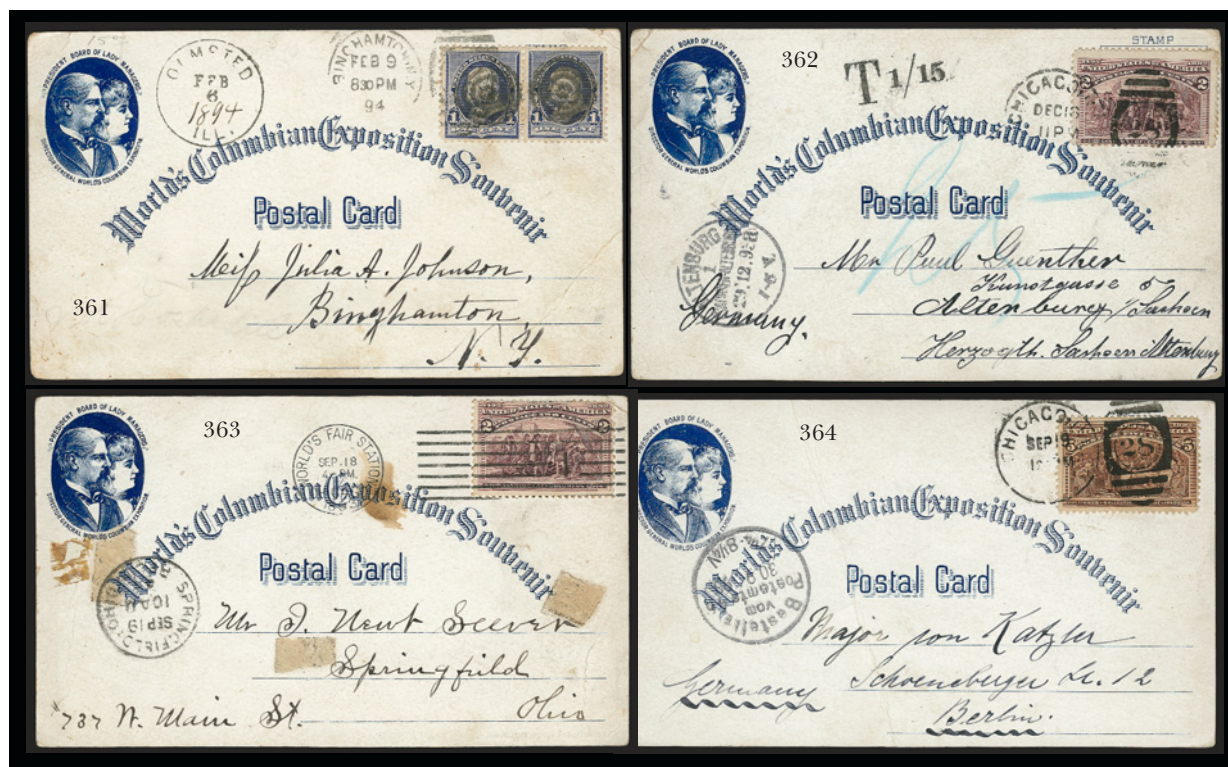 PRESIDENT BOARD OF LADY MANAGERS
DIRECTOR GENERAL WORLD'S COLUMBIAN EXHIBITION
OLMSTED
FEB
6
1894
ILL.
BINGHAMTON, N.Y.
FEB 9
830 PM
94
1 1
World's Columbian Exposition Souvenir
Postal Card
Miss Julia A. Johnson,
Binghamton,
N. Y.
361
PRESIDENT BOARD OF LADY MANAGERS
DIRECTOR GENERAL WORLD'S COLUMBIAN EXHIBITION
362
T 1/15
STAMP
CHICAGO
DEC 18
11 PM
UNITED STATES OF AMERICA
2 2
World's Columbian Exposition Souvenir
Postal Card
ALTENBURG
1
29.12.93
Mr Paul Guenther
Kunstgasse 5
Altenburg / Sachsen
Germany.
Herzogth. Sachsen Altenburg
PRESIDENT BOARD OF LADY MANAGERS
DIRECTOR GENERAL WORLD'S COLUMBIAN EXHIBITION
363
WORLD'S FAIR STATION
SEP. 18
UNITED STATES OF AMERICA
2 2
World's Columbian Exposition Souvenir
Postal Card
SPRINGFIELD OHIO
SEP 19
10 AM
Mr J. Newt Seever
Springfield
737 N. Main St. Ohio
PRESIDENT BOARD OF LADY MANAGERS
DIRECTOR GENERAL WORLD'S COLUMBIAN EXHIBITION
364
CHICAGO
SEP 19
28
UNITED STATES OF AMERICA
5 5
World's Columbian Exposition Souvenir
Postal Card
Bestellt
vom
Postamte
30.9
Major von Katzler
Germany Schoeneberger St. 12
Berlin.